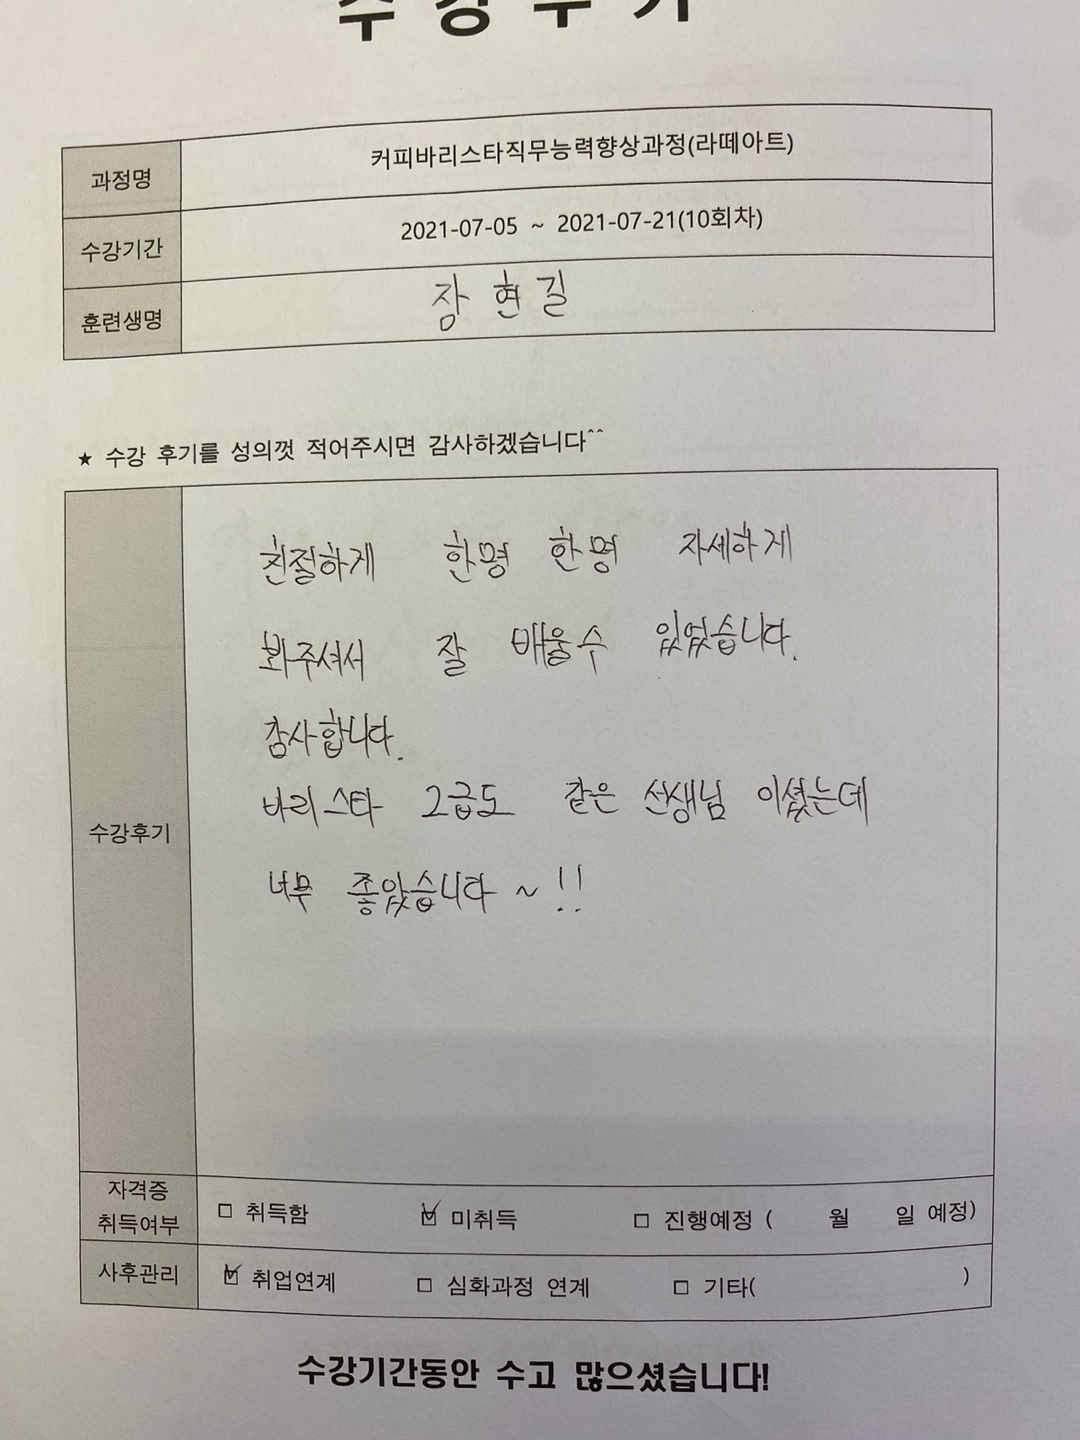 수강후기
과정명 커피바리스타직무능력향상과정(라떼아트)
수강기간 2021-07-05 ~ 2021-07-21(10회차)
훈련생명 장현길
★ 수강 후기를 성의껏 적어주시면 감사하겠습니다^^
친절하게 한명 한명 자세하게
봐주셔서 잘 배울수 있었습니다.
감사합니다.
바리스타 2급도 같은 선생님 이셨는데
수강후기
너무 좋았습니다 ~ !!
자격증
취득여부 □ 취득함 ☑ 미취득 □ 진행예정 ( 월 일 예정)
사후관리 ☑ 취업연계 □ 심화과정 연계 □ 기타( )
수강기간동안 수고 많으셨습니다!